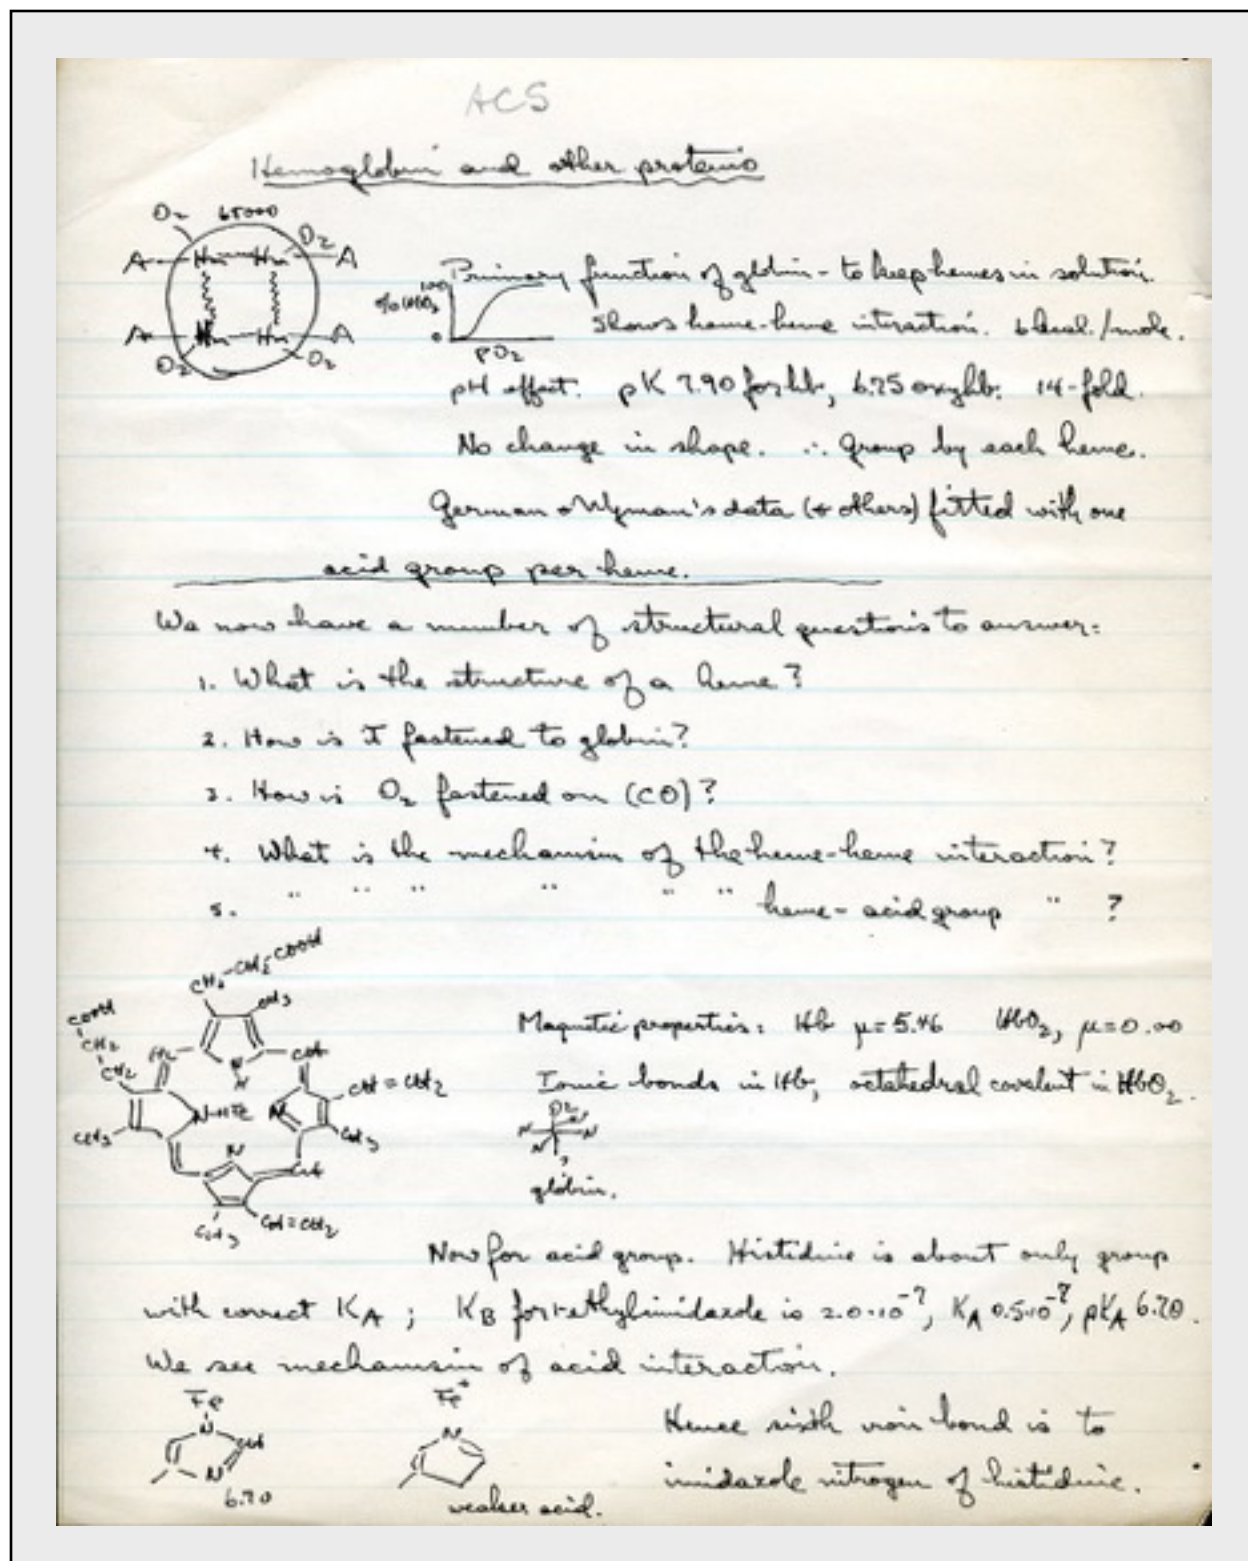 ACS
Hemoglobin and other proteins
O₂ 65000 O₂
A Hm Hm A
A Hm Hm A
O₂ O₂
100
0
pO₂
Primary function of globin - to keep hemes in solution.
Shows heme-heme interaction. /mole.
pH effect. pK 7.90 for Hb, 6.75 oxyhb. 14-fold.
No change in shape. ∴ group by each heme.
German & Wyman's data (& others) fitted with one
acid group per heme.
We now have a number of structural questions to answer:
1. What is the structure of a heme?
2. How is it fastened to globin?
3. How is O₂ fastened on (CO)?
4. What is the mechanism of the heme-heme interaction?
5. " " " " " " heme-acid group " ?
CH₂-CH₂-COOH
COOH
CH₂
CH₂
CH₃
HC
N
CH
CH=CH₂
N
Fe
N
CH₃
CH₃
N
CH
CH₃
CH=CH₂
Magnetic properties: Hb μ=5.46 HbO₂, μ=0.00
Ionic bonds in Hb, octahedral covalent in HbO₂.
O₂
N N
globin.
Now for acid group. Histidine is about only group
with correct K_A ; K_B for ethylimidazole is 2.0·10⁻⁷, K_A 0.5·10⁻⁷, pK_A 6.70.
We see mechanism of acid interaction.
Fe
N
CH
N
6.70
Fe⁺
N
weaker acid.
Hence sixth iron bond is to
imidazole nitrogen of histidine.